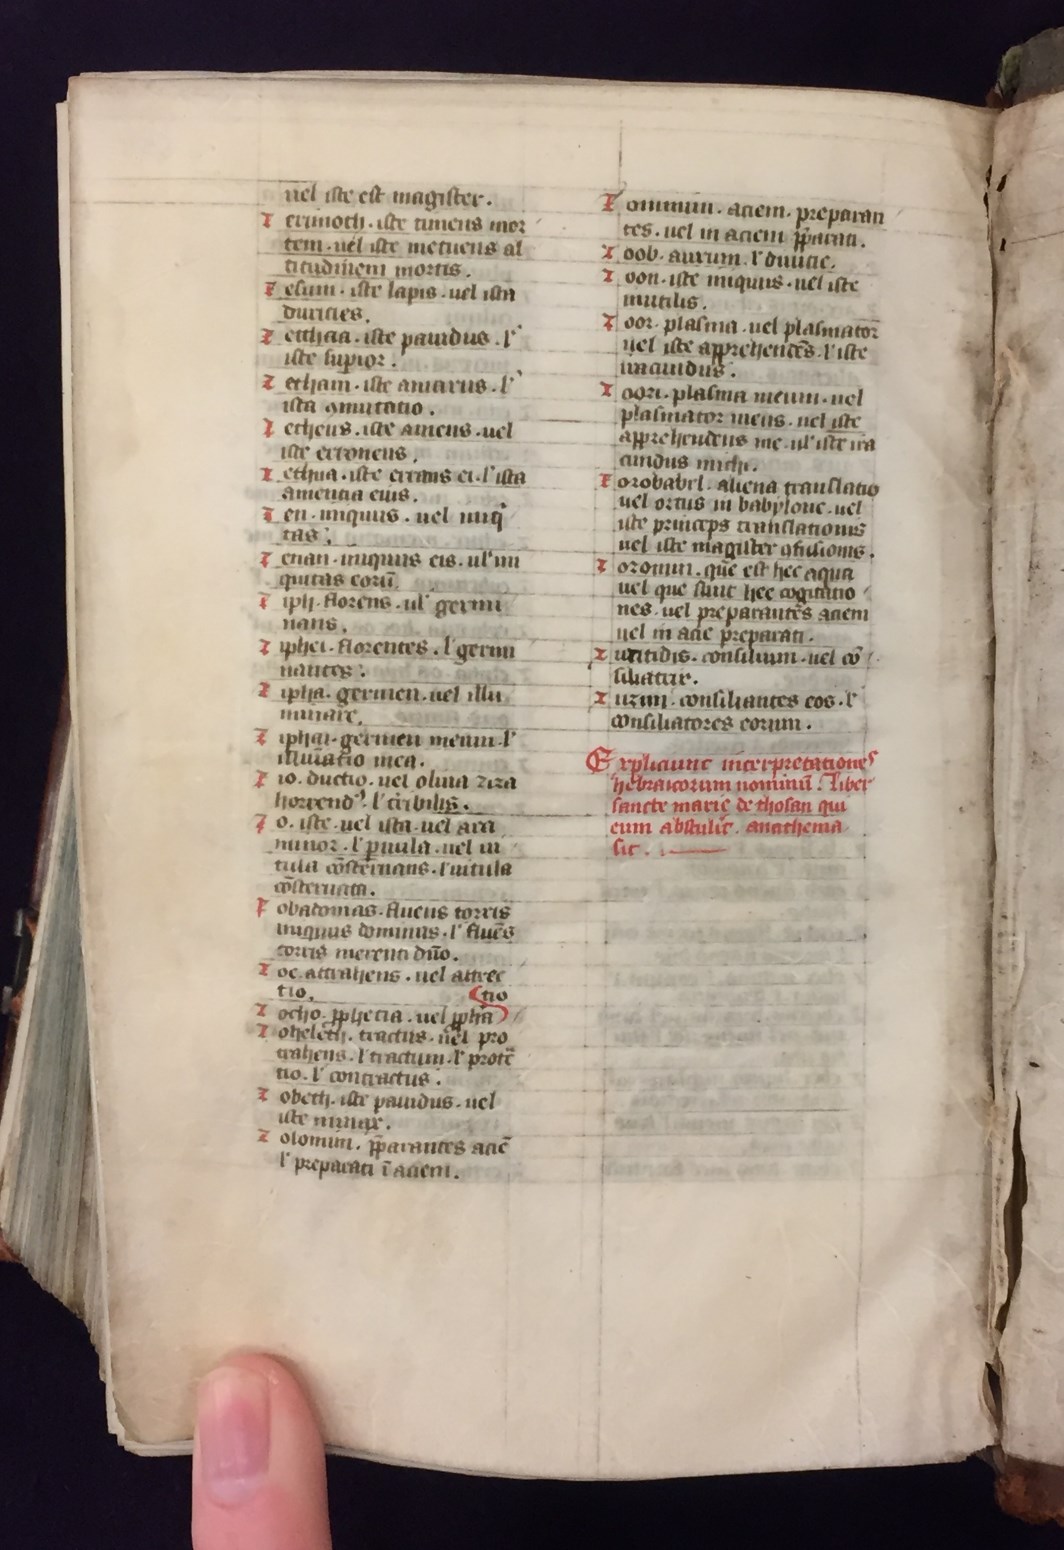 uel iste est magister.
Z erimoth. iste timens mor
tem. uel iste metuens al
titudinem mortis.
Z esum. iste lapis. uel ista
duricies.
Z etthaa. iste pauidus. l'
iste supior.
Z etham. iste amarus. l'
ista ꝯmutatio.
Z etheus. iste amens. uel
iste erroneus.
Z ethua. iste errans ei. l' ista
amentia eius.
Z eu. iniquus. uel iniq
tas.
Z enan. iniquus eis. ul' ini
quitas eorū.
Z iph. florens. ul' germi
nans.
Z iphei. florentes. l' germi
nantes.
Z ipha. germen. uel illu
minare.
Z iphai. germen meum. l'
illuīatio mea.
Z io. ductio. uel oliua
horrend'. l' t'ribilis.
Z o. iste. uel ista. uel ara
minor. l' ꝑuula. uel ui
tula cōsternans. l' uitula
cōsternata.
Z obadonias. fluens torris
iniquus dominus. l' fluēs
torris merenti dn̄o.
Z oe. attrahens. uel attrec
tio. tio
Z ocho. ꝓphetia. uel ꝓpha
Z oheleth. tractus. uel pro
trahens. l' tractum. l' protc̄
tio. l' contractus.
Z obeth. iste pauidus. uel
iste
Z olomim. p̄parantes aciē
l' preparati ī aciem.
Z ommim. aciem. preparan
tes. uel in aciem p̄parati.
Z oob. aurum. l' diuitie.
Z oon. iste iniquus. uel iste
inutilis.
Z oor. plasma. uel plasmator
uel iste apprehendēs. l' iste
iracundus.
Z oori. plasma meum. uel
plasmator meus. uel iste
apprehendens me. ul' iste ira
cundus michi.
Z orobabel. aliena translatio
uel ortus in babylone. uel
iste princeps translationis
uel iste magister ꝯfusionis.
Z oromim. que est hec aqua
uel que sunt hec cogitatio
nes. uel preparantes aciem
uel in acie preparati.
Z uritidis. consilium. uel cō
siliatur.
Z uzim. consiliantes eos. l'
consiliatores eorum.
Expliciunt interpretationes
hebraicorum nominū. Liber
sancte marie de thosan qui
eum abstulit. anathema
sit.